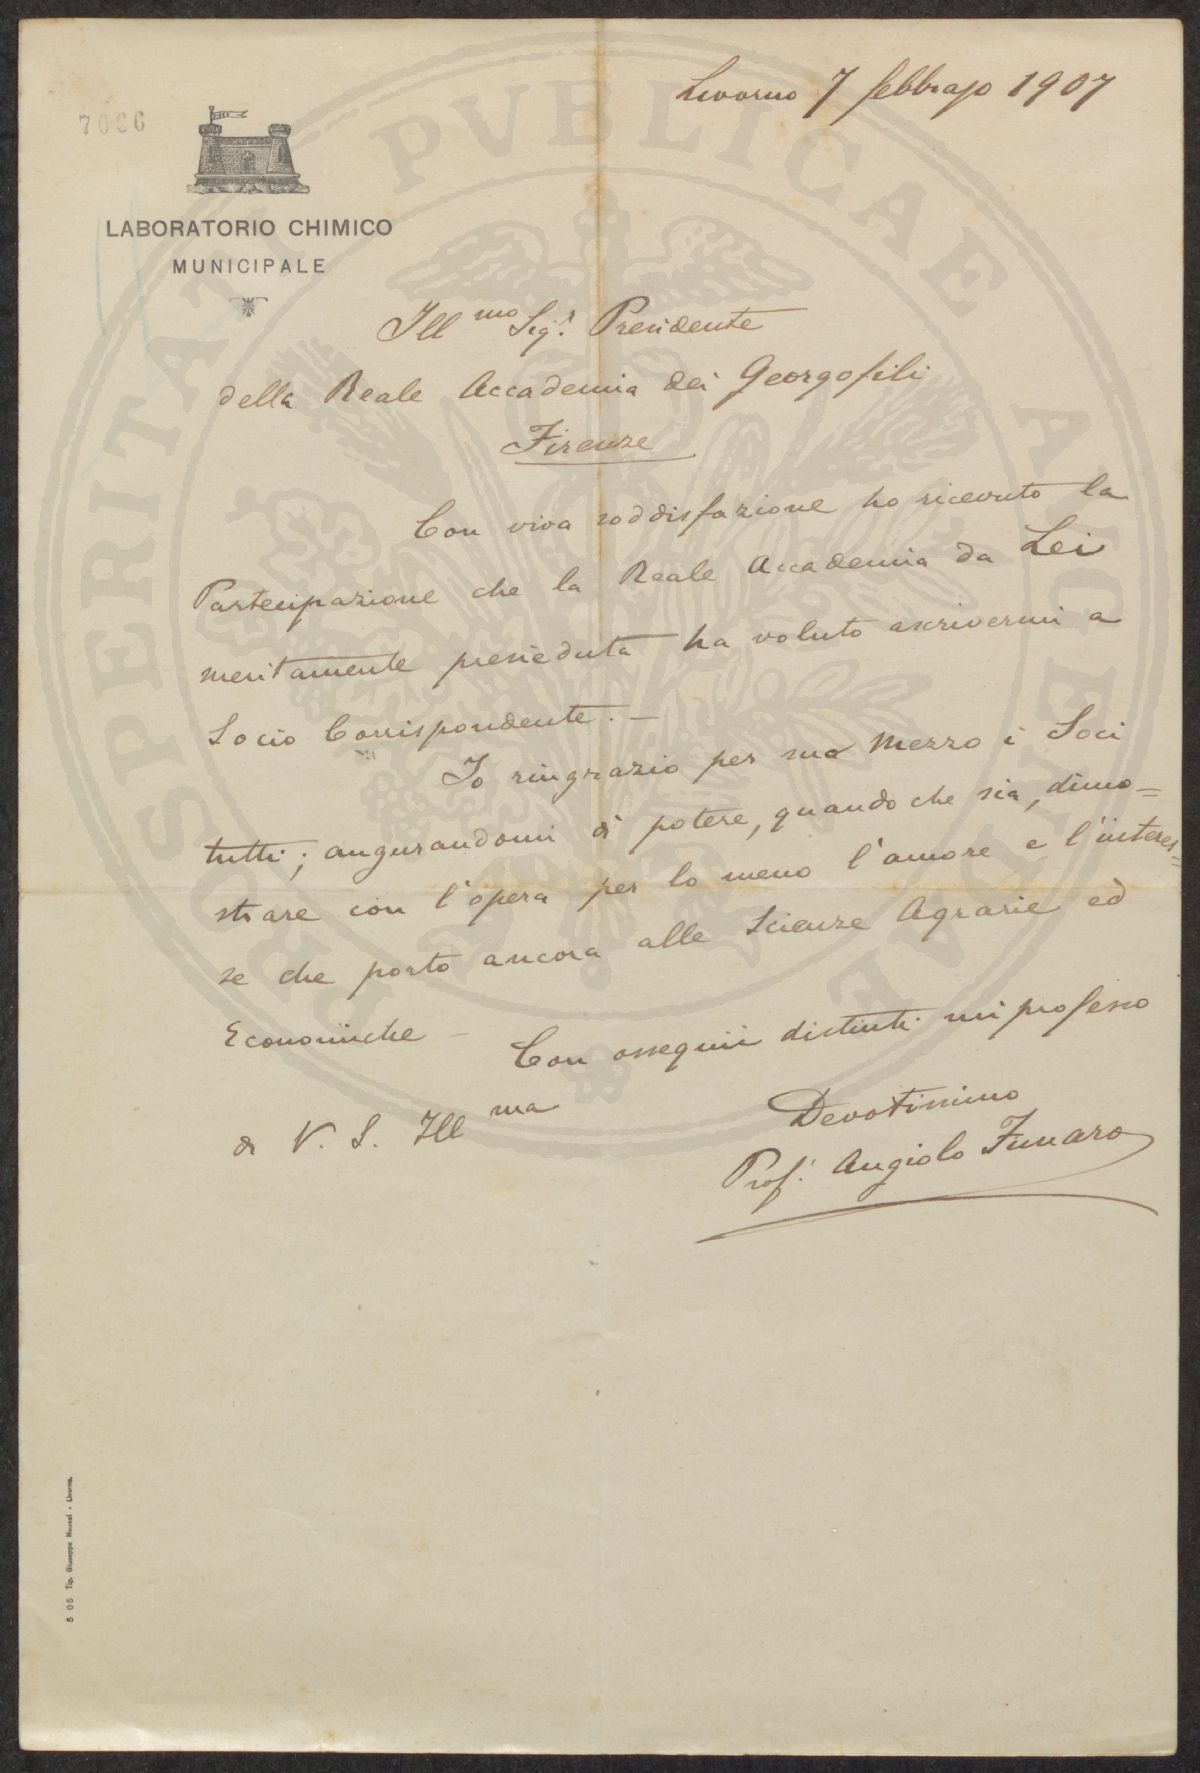 Livorno 7 febbrajo 1907
LABORATORIO CHIMICO
MUNICIPALE
Ill mo Sigr. Presidente
della Reale Accademia dei Georgofili
Firenze
Con viva soddisfazione ho ricevuto la
Partecipazione che la Reale Accademia da Lei
meritamente presieduta ha voluto ascrivermi a
Socio Corrispondente. —
Io ringrazio per suo mezzo i Soci
tutti; augurandomi di potere, quando che sia, dimo=
strare con l'opera per lo meno l'amore e l'interes=
se che porto ancora alle Scienze Agrarie ed
Economiche —
Con ossequii distinti mi professo
di V. S. Ill ma
Devotissimo
Prof. Angiolo Funaro
PROSPERITATI PVBLICAE AVGENDAE